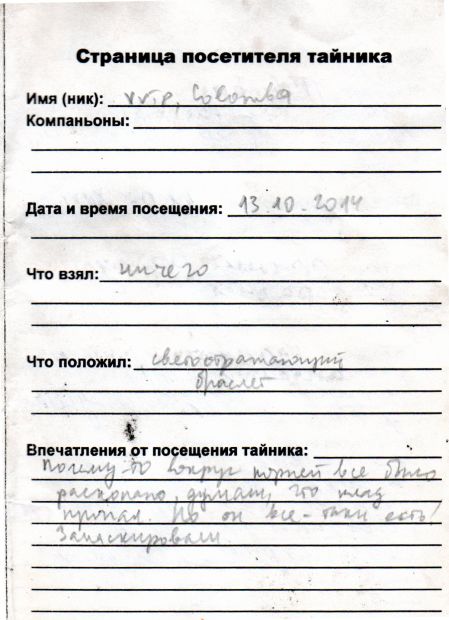 Страница посетителя тайника
Имя (ник): vvip, Colomba
Компаньоны:
Дата и время посещения: 13.10.2014
Что взял: ничего
Что положил: светоотражающий
браслет
Впечатления от посещения тайника:
Почему-то вокруг корней все было
раскопано, думали, что клад
пропал. Но он все-таки есть!
Замаскировали.